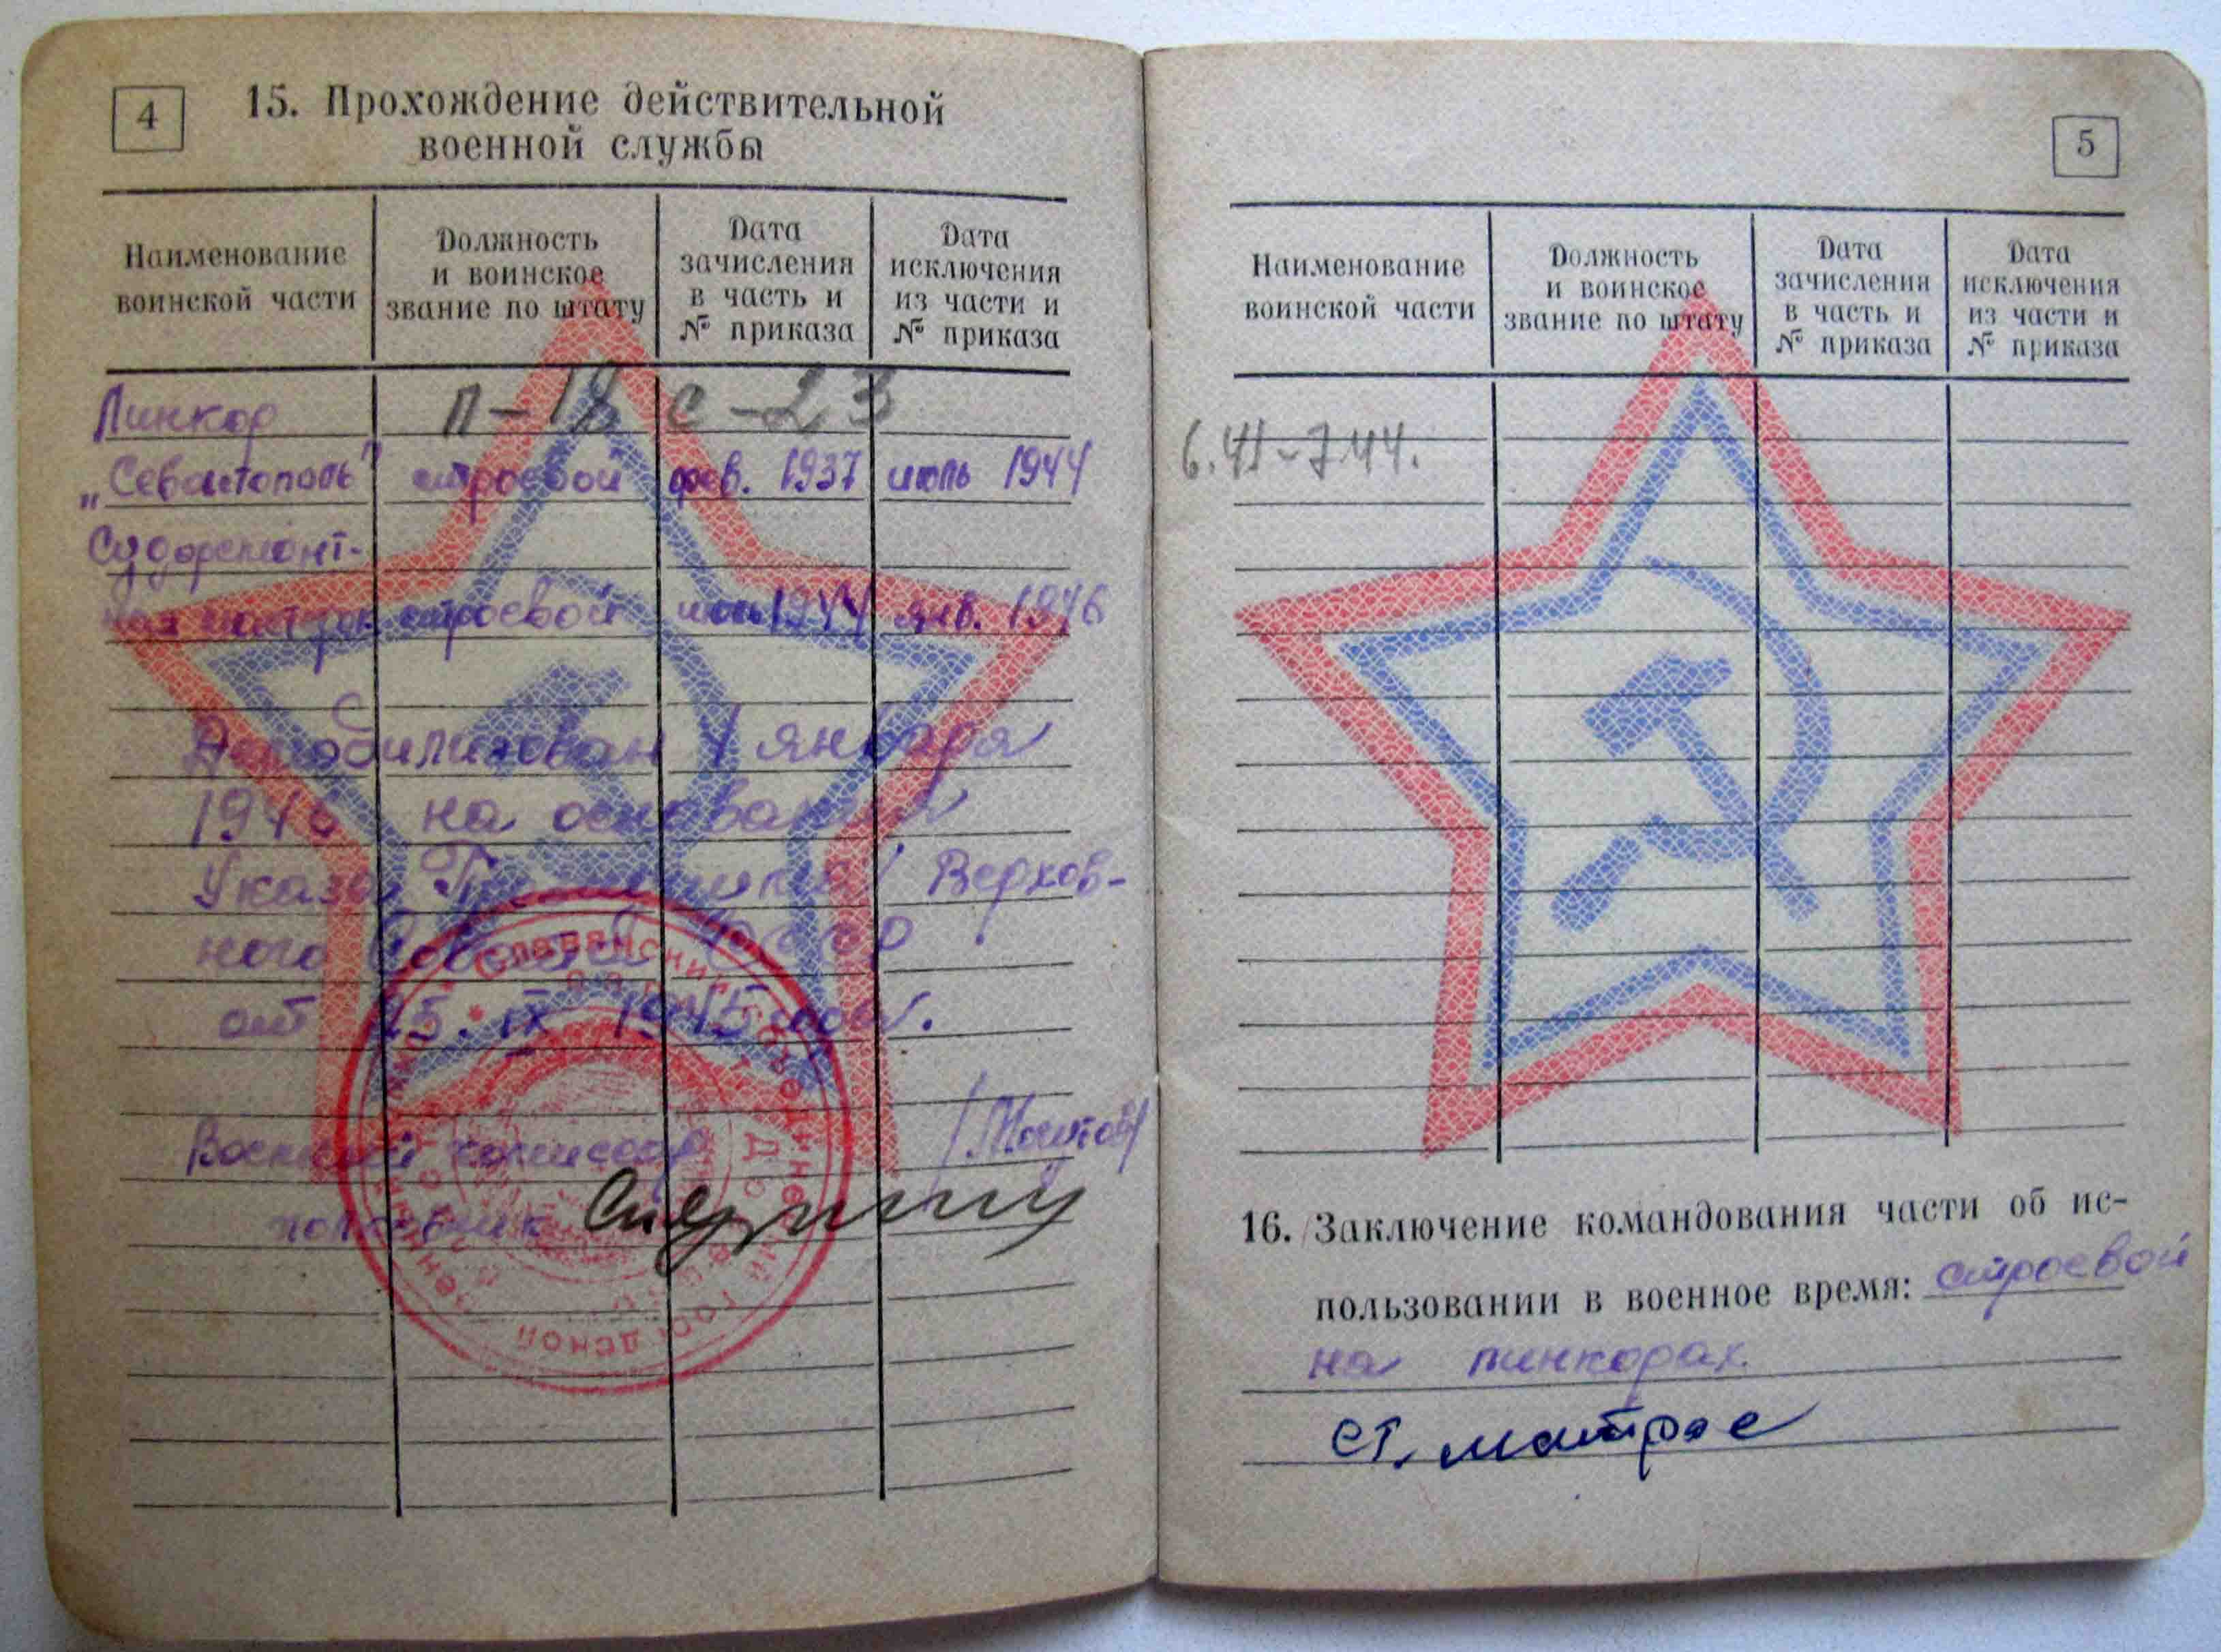 4
15. Прохождение действительной
военной службы
Наименование
воинской части
Должность
и воинское
звание по штату
Дата
зачисления
в часть и
№ приказа
Дата
исключения
из части и
№ приказа
п-12 с-23
Линкор
„Севастополь" строевой фев. 1937 июль 1944
Судоремонт-
ная строевой июль 1944 янв. 1946
Демобилизован 1 января
1946 на основании
Указа Президиума Верхов-
ного Совета СССР
от 25. IX 1945 года.
Военный комиссар
полковник
5
Наименование
воинской части
Должность
и воинское
звание по штату
Дата
зачисления
в часть и
№ приказа
Дата
исключения
из части и
№ приказа
6.41-7.44.
16. Заключение командования части об ис-
пользовании в военное время: строевой
на линкорах
ст. матрос